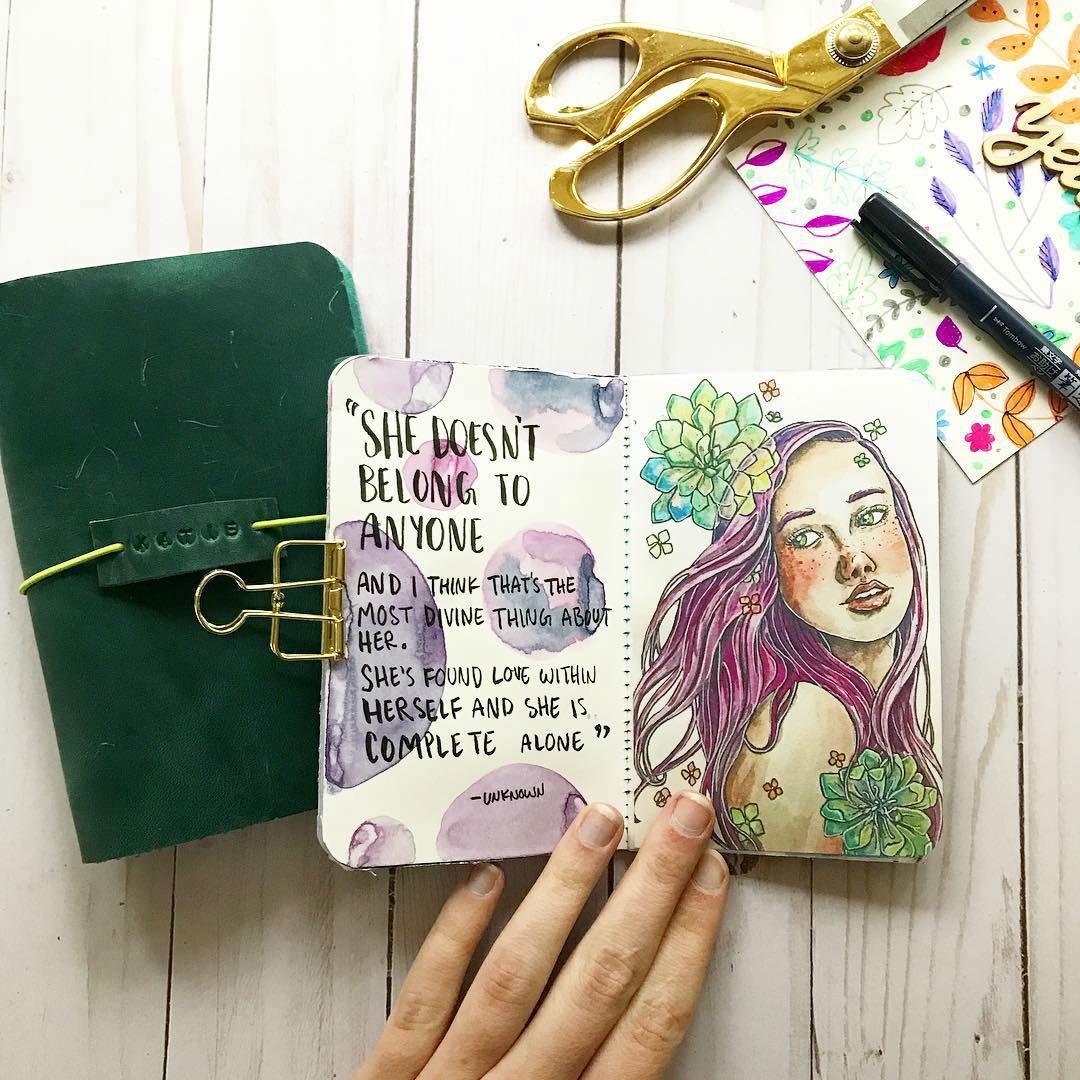 "SHE DOESN'T
BELONG TO
ANYONE
AND I THINK THAT'S THE
MOST DIVINE THING ABOUT
HER.
SHE'S FOUND LOVE WITHIN
HERSELF AND SHE IS
COMPLETE ALONE"
-UNKNOWN
KATIE
Tombow